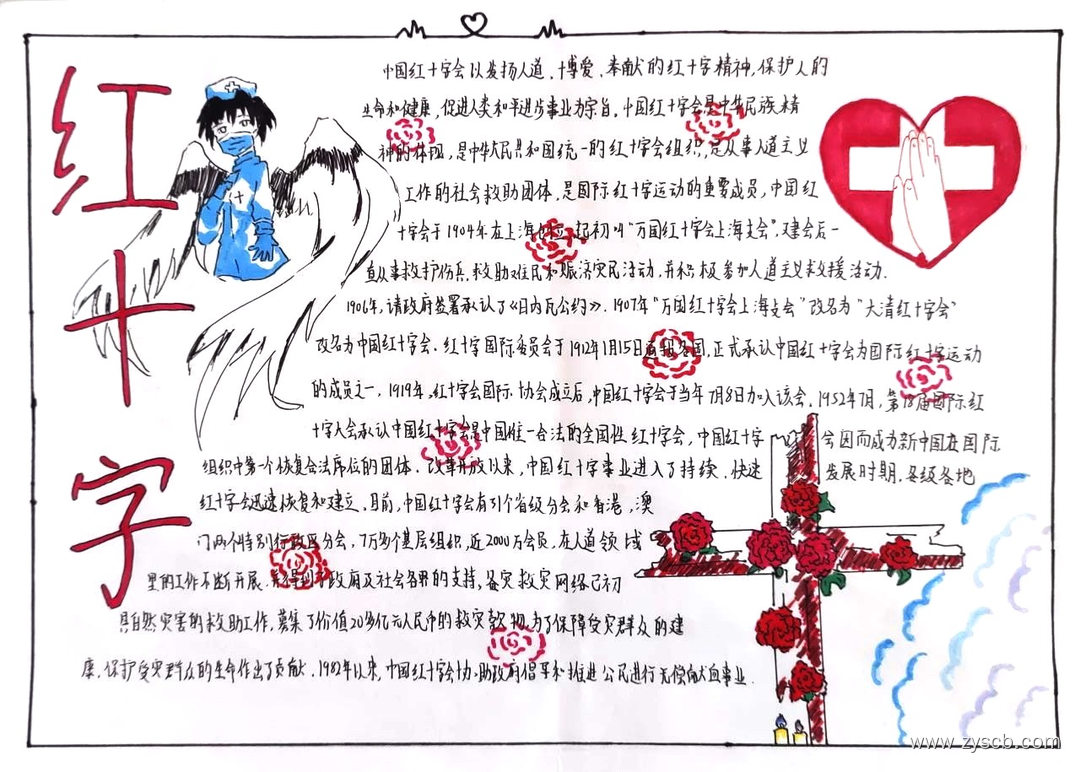 红十字
中国红十字会以发扬人道、博爱、奉献的红十字精神,保护人的
生命和健康,促进人类和平进步事业为宗旨。中国红十字会是中华民族精
神的体现,是中华人民共和国统一的红十字会组织,是从事人道主义
工作的社会救助团体,是国际红十字运动的重要成员,中国红
十字会于1904年在上海成立,起初叫“万国红十字会上海支会”,建会后一
直从事救护伤兵、救助难民和赈济灾民活动,并积极参加人道主义救援活动.
1906年,清政府签署承认了《日内瓦公约》.1907年“万国红十字会上海支会”改名为“大清红十字会”
改名为中国红十字会.红十字国际委员会于1912年1月15日通报各国,正式承认中国红十字会为国际红十字运动
的成员之一.1919年,红十字会国际协会成立后,中国红十字会于当年7月8日加入该会.1952年7月,第18届国际红
十字大会承认中国红十字会是中国唯一合法的全国性红十字会,中国红十字会因而成为新中国在国际
组织中第一个恢复合法席位的团体.改革开放以来,中国红十字事业进入了持续、快速发展时期,各级各地
红十字会迅速恢复和建立.目前,中国红十字会有31个省级分会和香港、澳
门两个特别行政区分会,7万多个基层组织,近2000万会员,在人道领域
里的工作不断开展,并得到市政府及社会各界的支持,备灾救灾网络已初
具自然灾害的救助工作,募集了价值20多亿元人民币的救灾款物,为了保障受灾群众的健
康、保护受灾群众的生命作出了贡献.1982年以来,中国红十字会协助政府倡导和推进公民进行无偿献血事业.
www.zyscb.com